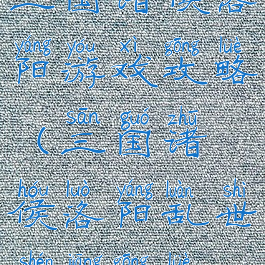 三国诸侯洛
yáng yóu xì gōng lüè
阳游戏攻略
sān guó zhū
(三国诸
hóu luò yáng luàn shì
侯洛阳乱世